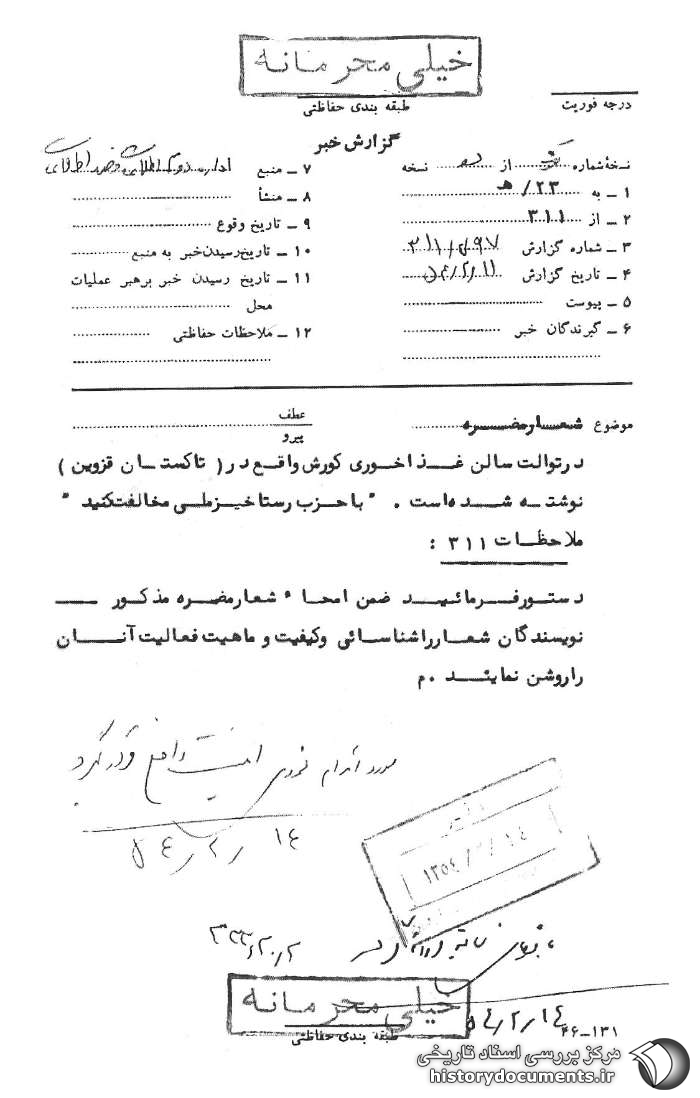 خیلی محرمانه
طبقه بندی حفاظتی
درجه فوریت
گزارش خبر
نسخهٔ شماره از نسخه
۱ ـ به ۲۳ / هـ
۲ ـ از ۳۱۱
۳ ـ شماره گزارش
۴ ـ تاریخ گزارش ۵۴/۲/۱۱
۵ ـ پیوست
۶ ـ گیرندگان خبر
۷ ـ منبع
۸ ـ منشأ
۹ ـ تاریخ وقوع
۱۰ ـ تاریخ رسیدن خبر به منبع
۱۱ ـ تاریخ رسیدن خبر برهبر عملیات
محل
۱۲ ـ ملاحظات حفاظتی
موضوع شعار مضره
عطف
پیرو
در توالت سالن غذاخوری کورش واقع در ( تاکستان قزوین )
نوشته شده است . " با حزب رستاخیز ملی مخالفت کنید "
ملاحظات ۳۱۱ :
دستور فرمائید ضمن امحاء شعار مضره مذکور
نویسندگان شعار را شناسائی و کیفیت و ماهیت فعالیت آنان
را روشن نمایند . م
مورد اقدام فوری قرار گیرد
۵۴/۲/۱۴
۱۳۵۴/۲/۱۴
خیلی محرمانه
طبقه بندی حفاظتی
۵۴/۲/۱۴
۴۶-۱۳۱
مرکز بررسی اسناد تاریخی
historydocuments.ir